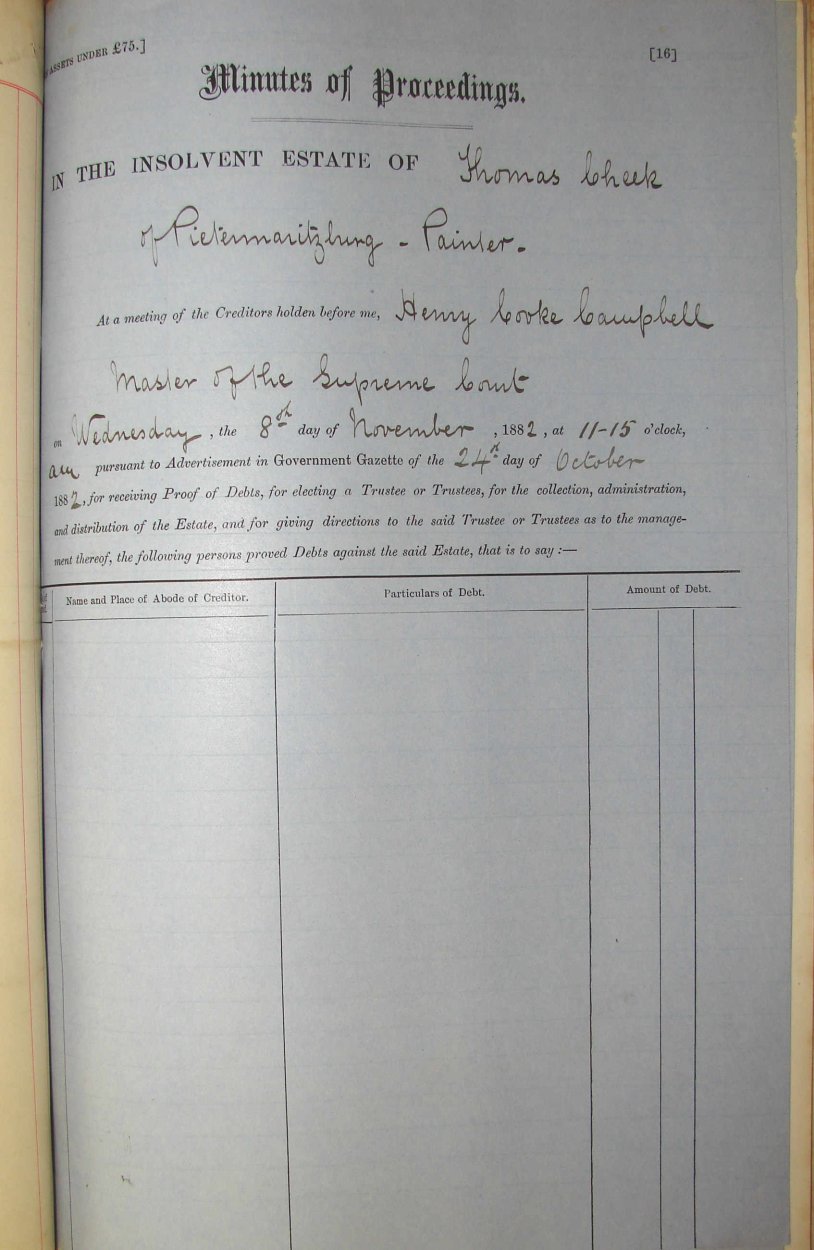 ASSETS UNDER £75.]
[16]
Minutes of Proceedings.
IN THE INSOLVENT ESTATE OF Thomas Cheek
of Pietermaritzburg - Painter.
At a meeting of the Creditors holden before me, Henry Cooke Campbell
Master of the Supreme Court
on Wednesday, the 8th day of November, 1882, at 11-15 o'clock,
am pursuant to Advertisement in Government Gazette of the 24th day of October
1882, for receiving Proof of Debts, for electing a Trustee or Trustees, for the collection, administration,
and distribution of the Estate, and for giving directions to the said Trustee or Trustees as to the manage-
ment thereof, the following persons proved Debts against the said Estate, that is to say :—
Name and Place of Abode of Creditor.
Particulars of Debt.
Amount of Debt.